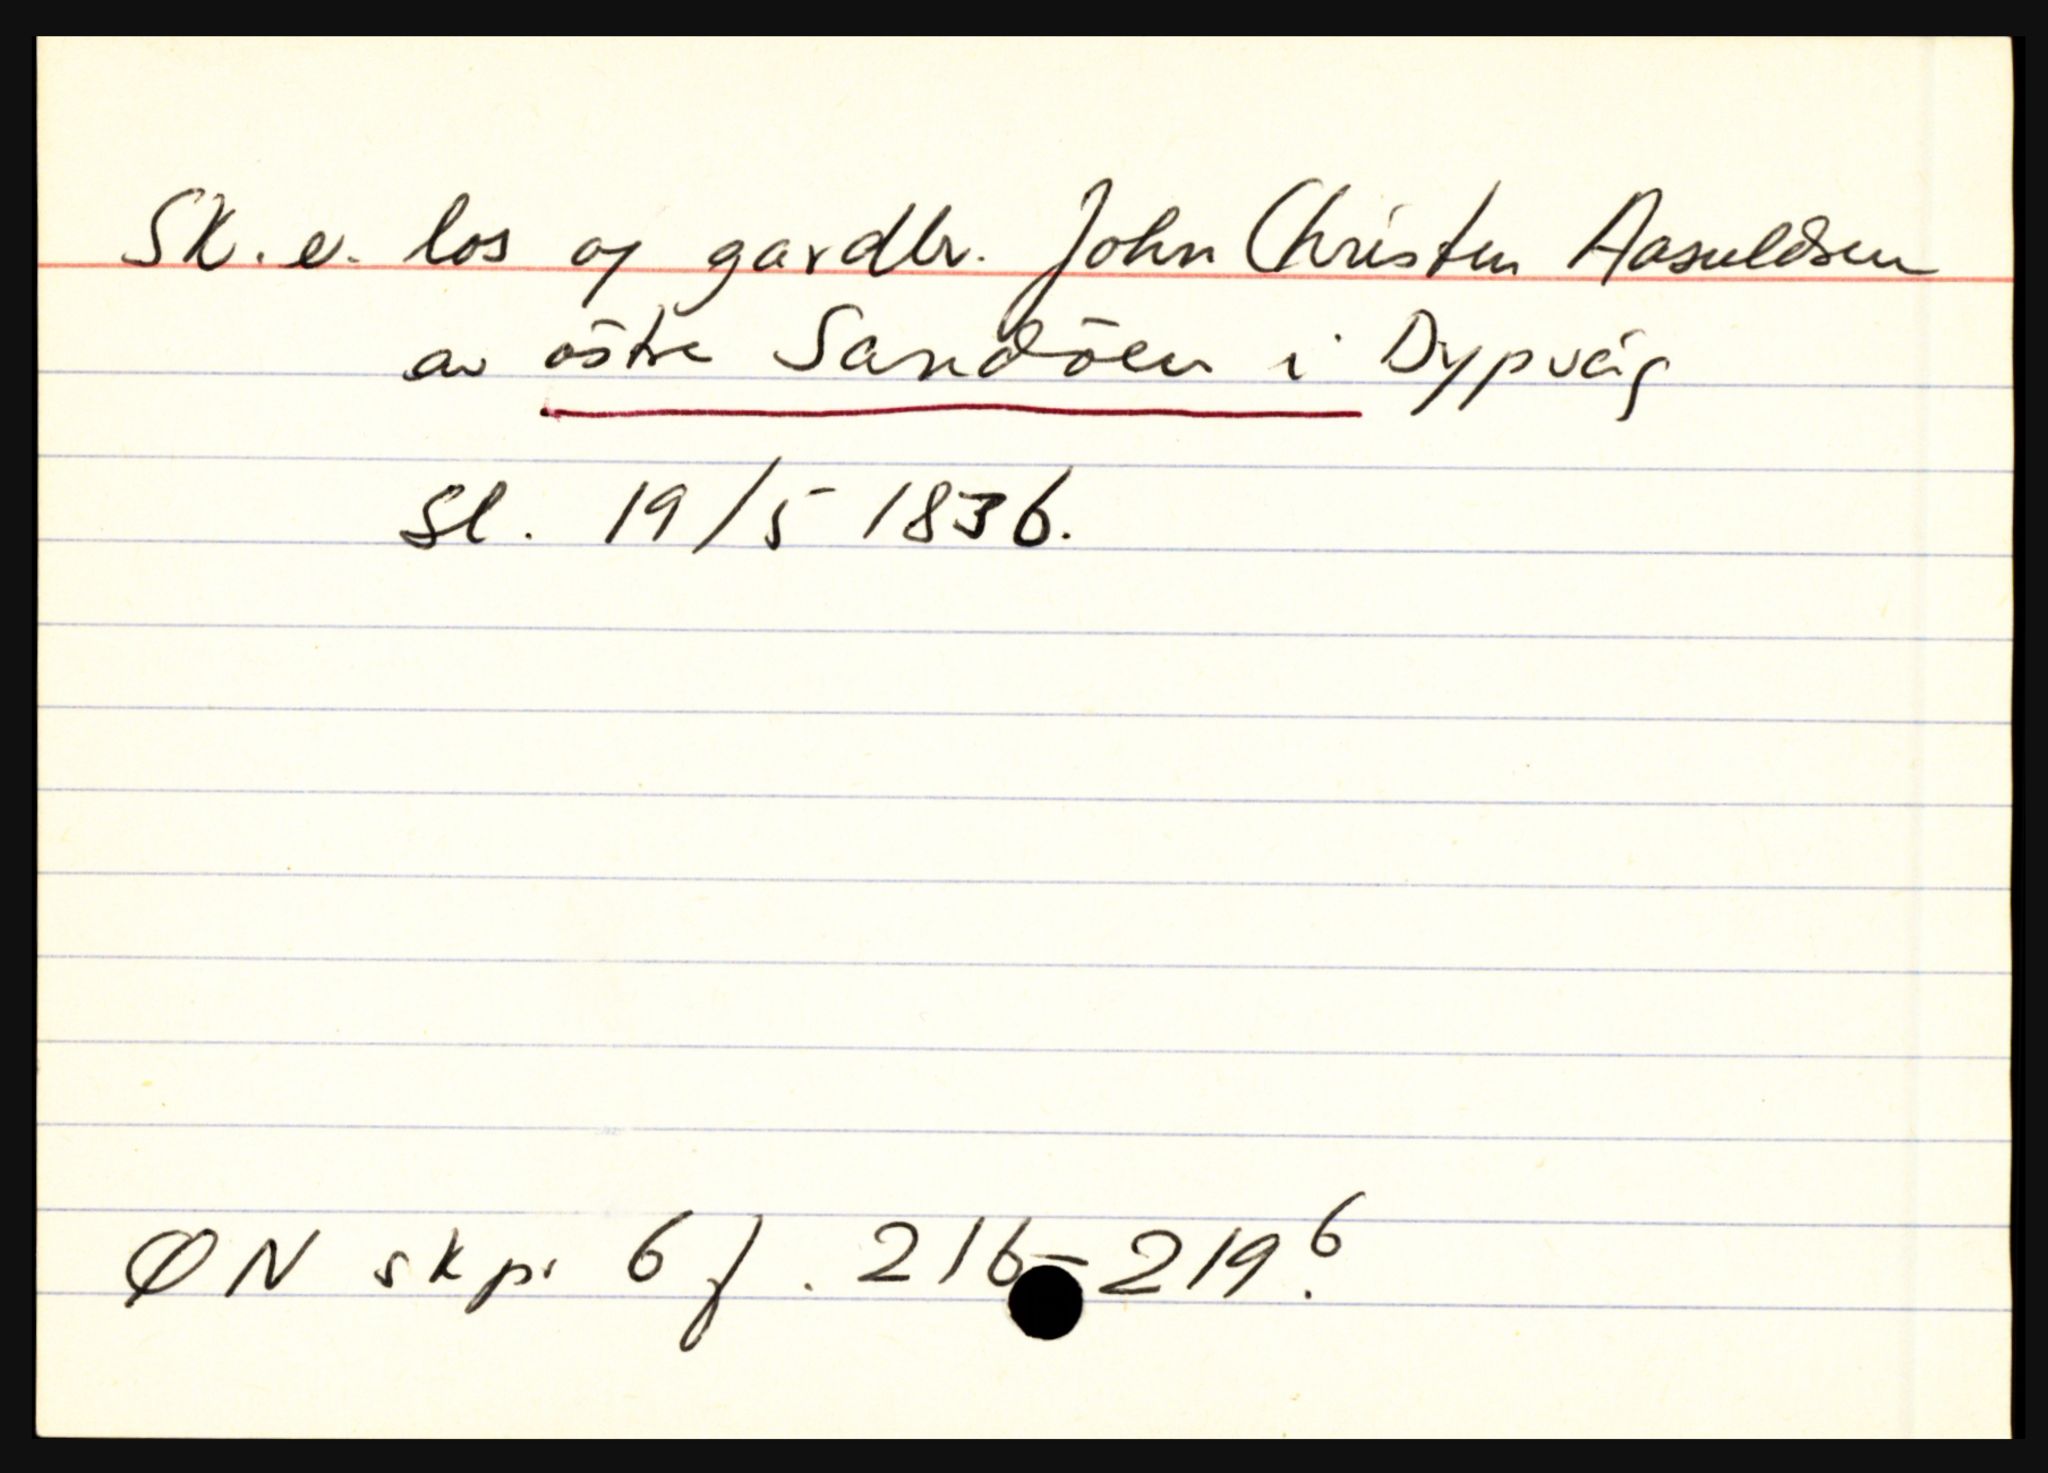 Sk. e. los og gardbr. John Christen Aasuldsen
av östre Sandöen i Dypvåg
Sl. 19/5 1836.
ØN skpr 6 f. 216-219.b